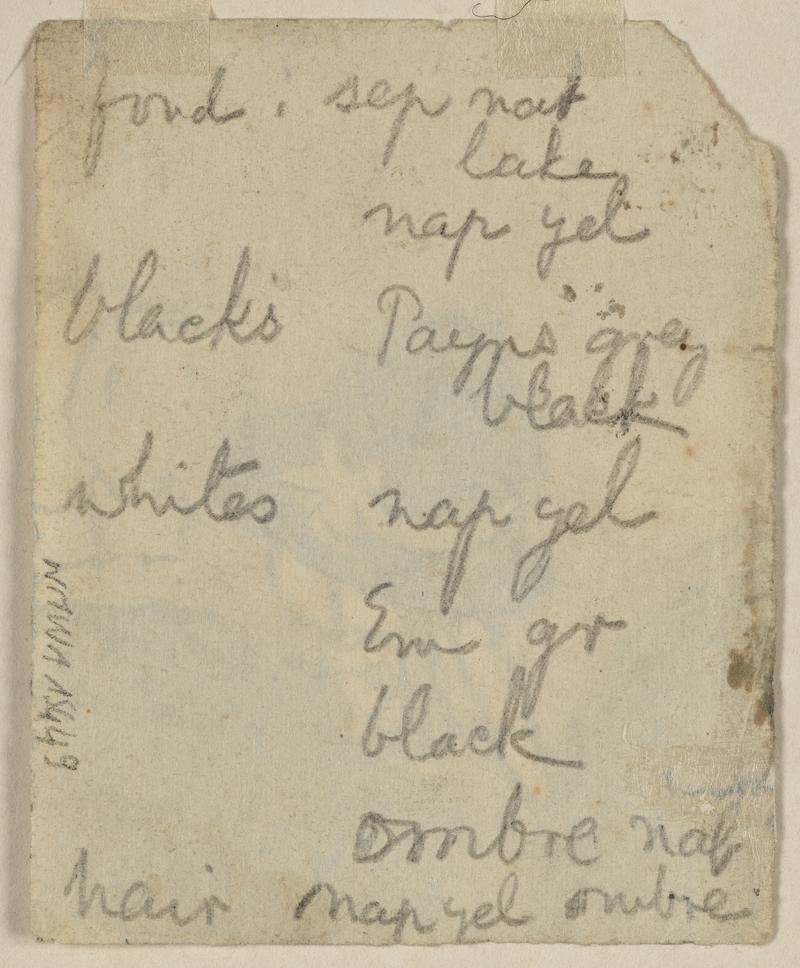 fond : sep nat
lake
nap yel
blacks Payns grey
black
whites nap yel
Em gr
black
ombre nat
hair nap yel ombre